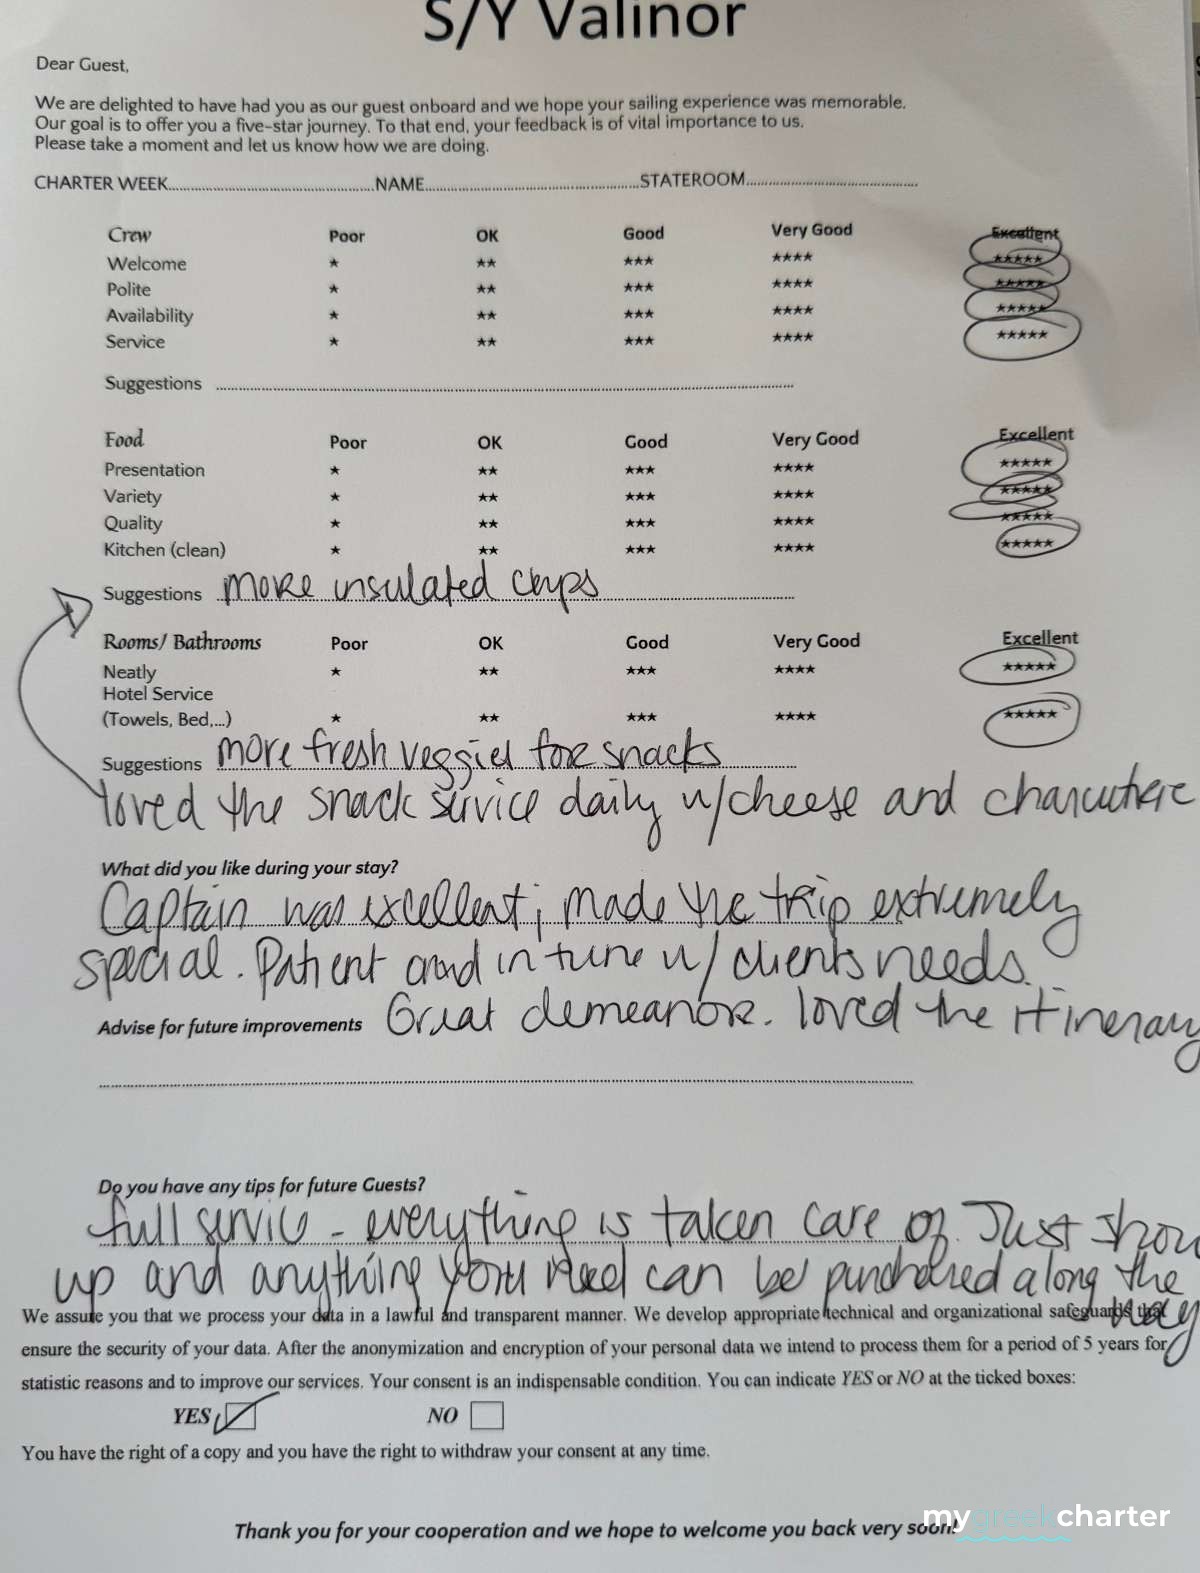 S/Y Valinor
Dear Guest,
We are delighted to have had you as our guest onboard and we hope your sailing experience was memorable.
Our goal is to offer you a five-star journey. To that end, your feedback is of vital importance to us.
Please take a moment and let us know how we are doing.
CHARTER WEEK..............................NAME..............................STATEROOM..............................
Crew Poor OK Good Very Good Excellent
Welcome ★ ★★ ★★★ ★★★★ ★★★★★
Polite ★ ★★ ★★★ ★★★★ ★★★★★
Availability ★ ★★ ★★★ ★★★★ ★★★★★
Service ★ ★★ ★★★ ★★★★ ★★★★★
Suggestions ..............................
Food Poor OK Good Very Good Excellent
Presentation ★ ★★ ★★★ ★★★★ ★★★★★
Variety ★ ★★ ★★★ ★★★★ ★★★★★
Quality ★ ★★ ★★★ ★★★★ ★★★★★
Kitchen (clean) ★ ★★ ★★★ ★★★★ ★★★★★
Suggestions more insulated cups
Rooms/ Bathrooms Poor OK Good Very Good Excellent
Neatly ★ ★★ ★★★ ★★★★ ★★★★★
Hotel Service
(Towels, Bed,...) ★ ★★ ★★★ ★★★★ ★★★★★
Suggestions more fresh veggies for snacks
loved the snack service daily w/cheese and charcuterie
What did you like during your stay?
Captain was excellent; made the trip extremely
special. Patient and in tune w/ clients needs.
Advise for future improvements Great demeanor. loved the itinerary
..............................
Do you have any tips for future Guests?
full service - everything is taken care of. Just show
up and anything you need can be purchased along the
way
We assure you that we process your data in a lawful and transparent manner. We develop appropriate technical and organizational safeguards that
ensure the security of your data. After the anonymization and encryption of your personal data we intend to process them for a period of 5 years for
statistic reasons and to improve our services. Your consent is an indispensable condition. You can indicate YES or NO at the ticked boxes:
YES NO
You have the right of a copy and you have the right to withdraw your consent at any time.
Thank you for your cooperation and we hope to welcome you back very soon!
mygreekcharter